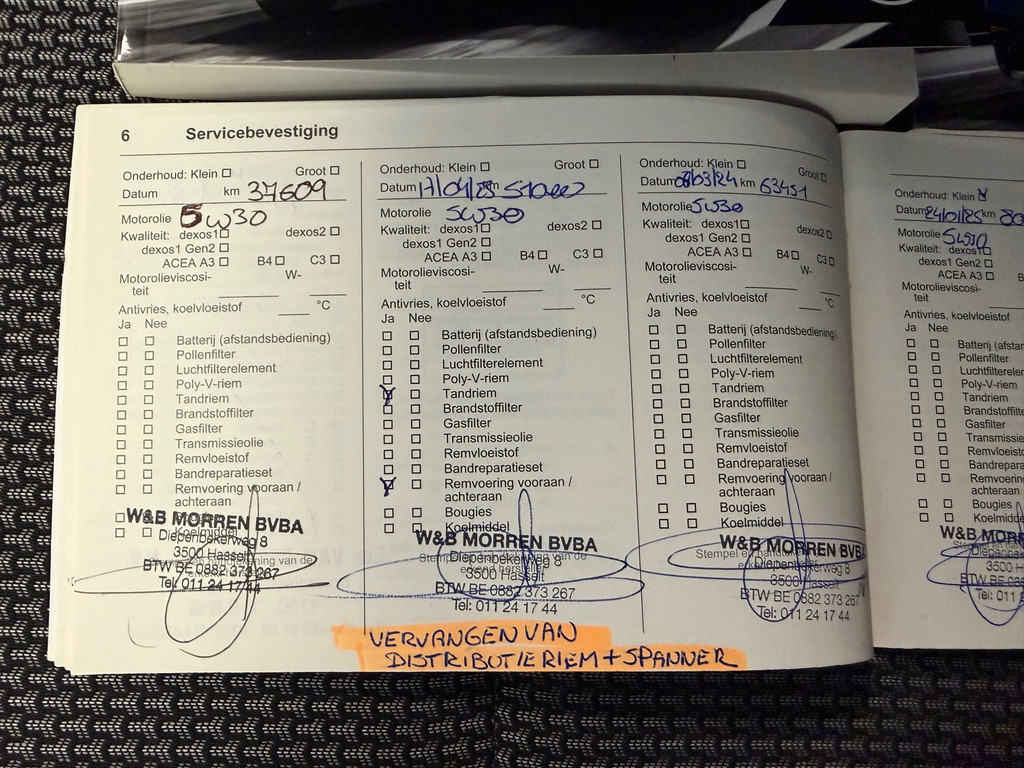 6 Servicebevestiging
Onderhoud: Klein ☐ Groot ☐
Datum km 37609
Motorolie 5W30
Kwaliteit: dexos1 ☐ dexos2 ☐
dexos1 Gen2 ☐
ACEA A3 ☐ B4 ☐ C3 ☐
Motorolieviscosi-
teit W-
Antivries, koelvloeistof °C
Ja Nee
☐ ☐ Batterij (afstandsbediening)
☐ ☐ Pollenfilter
☐ ☐ Luchtfilterelement
☐ ☐ Poly-V-riem
☐ ☐ Tandriem
☐ ☐ Brandstoffilter
☐ ☐ Gasfilter
☐ ☐ Transmissieolie
☐ ☐ Remvloeistof
☐ ☐ Bandreparatieset
☐ ☐ Remvoering vooraan /
achteraan
W&B MORREN BVBA
Koelmiddel
Diepenbekerweg 8
3500 Hasselt
BTW BE 0882 373 267
Tel: 011 24 17 44
Onderhoud: Klein ☐ Groot ☐
Datum km
Motorolie 5W30
Kwaliteit: dexos1 ☐ dexos2 ☐
dexos1 Gen2 ☐
ACEA A3 ☐ B4 ☐ C3 ☐
Motorolieviscosi-
teit W-
Antivries, koelvloeistof °C
Ja Nee
☐ ☐ Batterij (afstandsbediening)
☐ ☐ Pollenfilter
☐ ☐ Luchtfilterelement
☐ ☐ Poly-V-riem
☑ ☐ Tandriem
☐ ☐ Brandstoffilter
☐ ☐ Gasfilter
☐ ☐ Transmissieolie
☐ ☐ Remvloeistof
☐ ☐ Bandreparatieset
☑ ☐ Remvoering vooraan /
achteraan
☐ ☐ Bougies
☐ ☐ Koelmiddel
W&B MORREN BVBA
Diepenbekerweg 8
3500 Hasselt
BTW BE 0882 373 267
Tel: 011 24 17 44
VERVANGEN VAN
DISTRIBUTIERIEM + SPANNER
Onderhoud: Klein ☐ Groot ☐
Datum 08/03/24 km 63451
Motorolie 5W30
Kwaliteit: dexos1 ☐ dexos2 ☐
dexos1 Gen2 ☐
ACEA A3 ☐ B4 ☐ C3 ☐
Motorolieviscosi-
teit W-
Antivries, koelvloeistof °C
Ja Nee
☐ ☐ Batterij (afstandsbediening)
☐ ☐ Pollenfilter
☐ ☐ Luchtfilterelement
☐ ☐ Poly-V-riem
☐ ☐ Tandriem
☐ ☐ Brandstoffilter
☐ ☐ Gasfilter
☐ ☐ Transmissieolie
☐ ☐ Remvloeistof
☐ ☐ Bandreparatieset
☐ ☐ Remvoering vooraan /
achteraan
☐ ☐ Bougies
☐ ☐ Koelmiddel
W&B MORREN BVBA
Stempel en
Diepenbekerweg 8
3500 Hasselt
BTW BE 0882 373 267
Tel: 011 24 17 44
Onderhoud: Klein ☑
Datum 24/01/25 km 80
Motorolie 5W30
Kwaliteit: dexos1 ☐
dexos1 Gen2 ☐
ACEA A3 ☐
Motorolieviscosi-
teit
Antivries, koelvloeistof
Ja Nee
☐ ☐ Batterij (afstan
☐ ☐ Pollenfilter
☐ ☐ Luchtfilterele
☐ ☐ Poly-V-riem
☐ ☐ Tandriem
☐ ☐ Brandstoffilte
☐ ☐ Gasfilter
☐ ☐ Transmissie
☐ ☐ Remvloeisto
☐ ☐ Bandreparati
☐ ☐ Remvoering
achteraan
☐ ☐ Bougies
☐ ☐ Koelmidd
W&B MORR